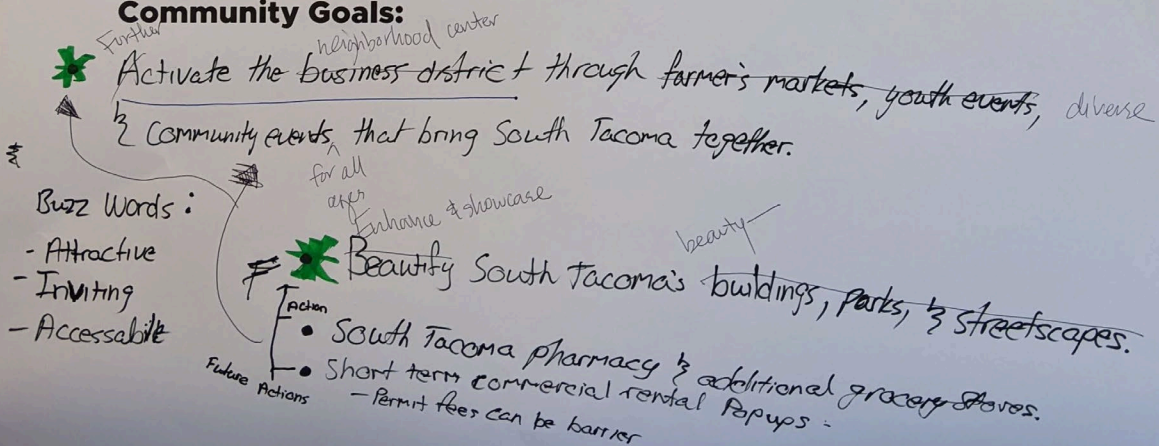 Community Goals:
Further
neighborhood center
Activate the business district through farmer's markets, youth events, diverse
& Community events, that bring South Tacoma together.
for all
ages
Buzz Words:
- Attractive
- Inviting
- Accessable
Enhance & showcase
beauty
Beautify South Tacoma's buildings, parks, & streetscapes.
Action
• South Tacoma pharmacy & additional grocery stores.
Future Actions
• Short term commercial rental Popups -
- Permit fees can be barrier